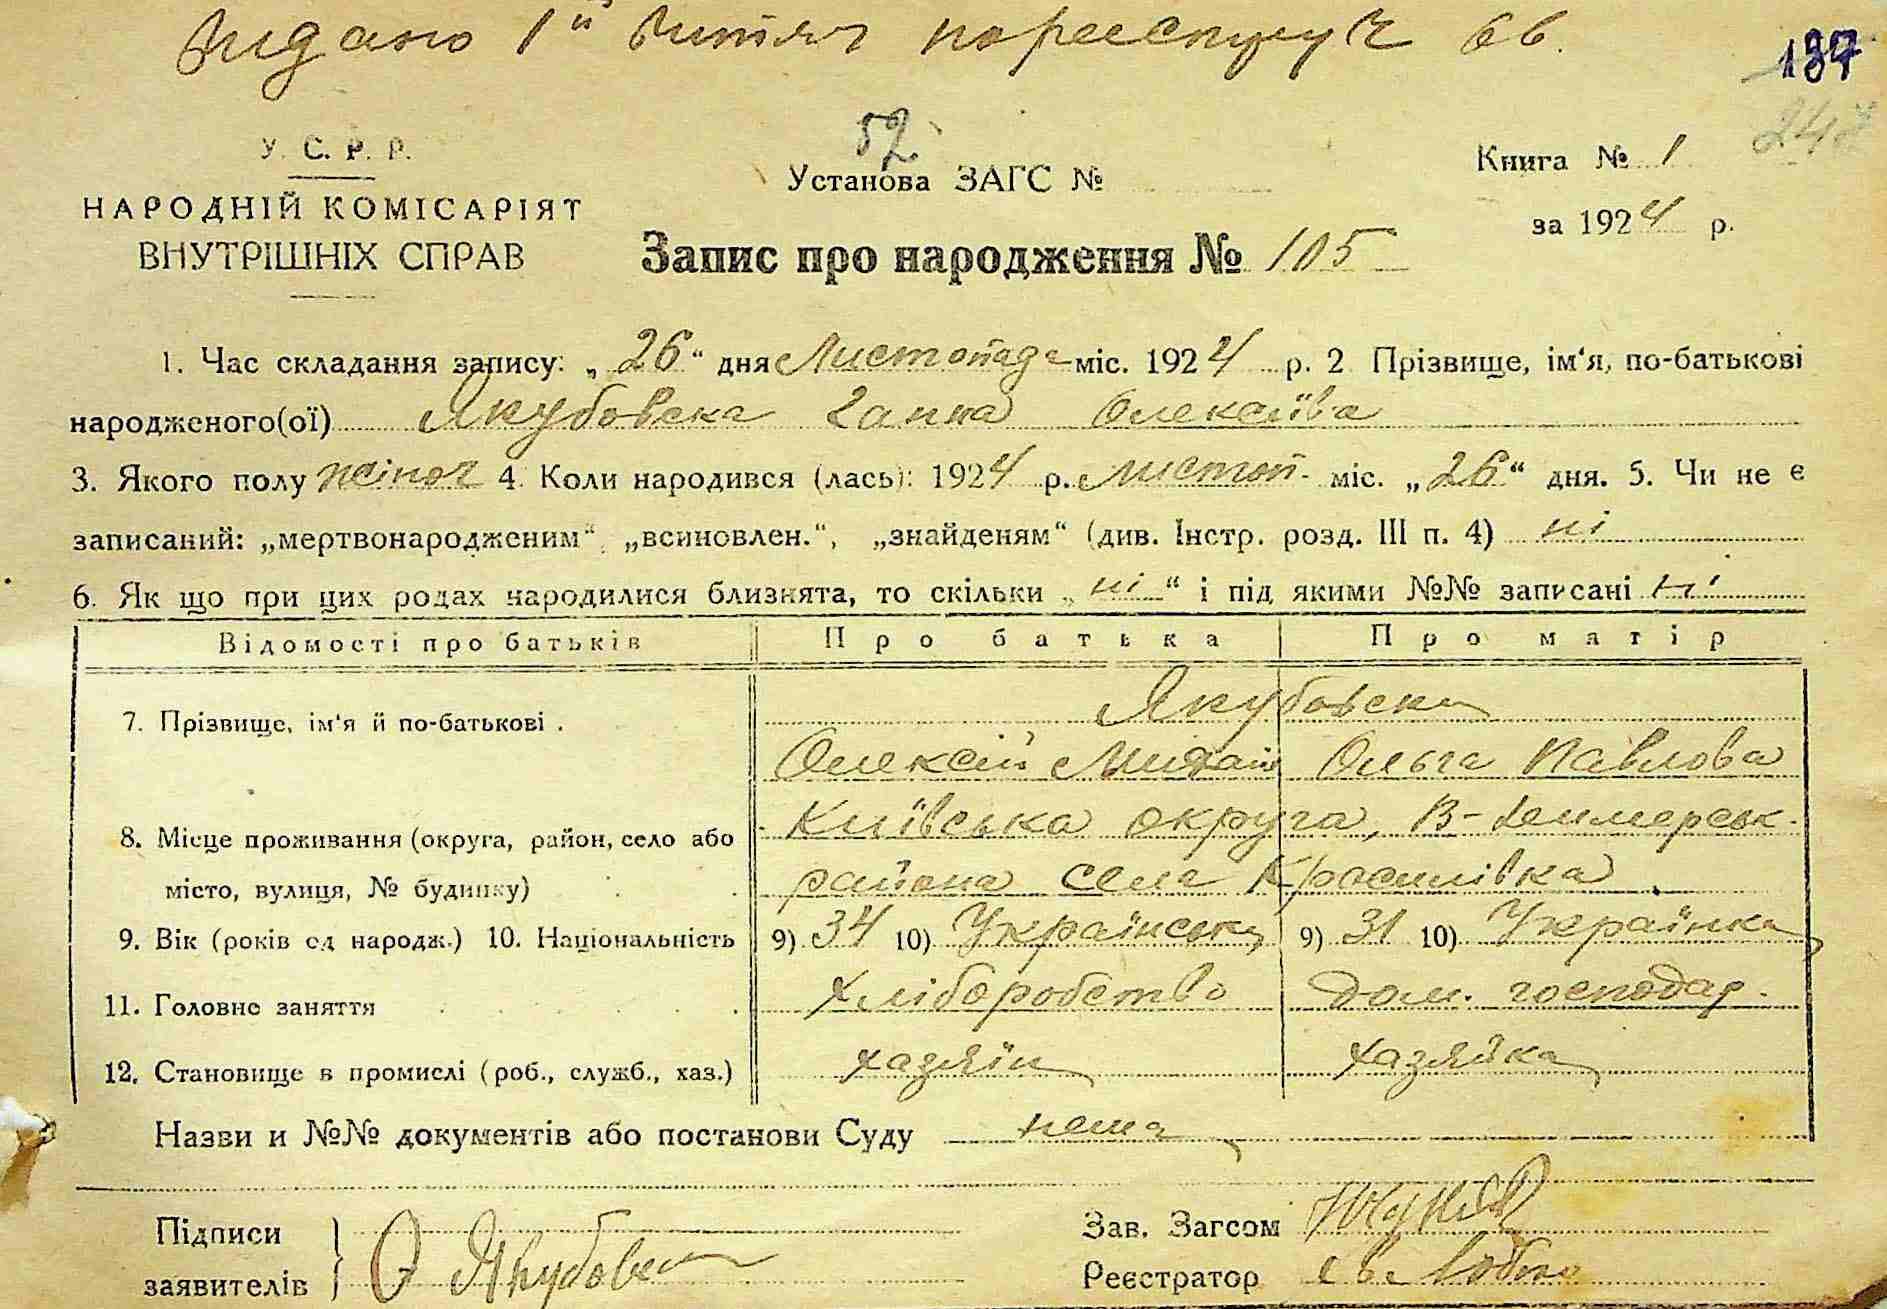 Видано 1й витяг
187
247
У. С. Р. Р.
НАРОДНІЙ КОМІСАРІЯТ
ВНУТРІШНІХ СПРАВ
52
Установа ЗАГС №
Книга № 1
за 1924 р.
Запис про народження № 105
1. Час складання запису: „26“ дня Листопада міс. 1924 р. 2 Прізвище, ім'я, по-батькові
народженого(ої) Якубовська Ганна Олексіїва
3. Якого полу жіноч 4. Коли народився (лась): 1924 р. листоп. міс. „26“ дня. 5. Чи не є
записаний: „мертвонародженим“, „всиновлен.“, „знайденям“ (див. Інстр. розд. III п. 4) ні
6. Як що при цих родах народилися близнята, то скільки „ні“ і під якими №№ записані ні
Відомості про батьків Про батька Про матір
7. Прізвище, ім'я й по-батькові . Якубовськи
Олексій Михайл Ольга Павлова
8. Місце проживання (округа, район, село або Київська округа, В-Димерськ.
місто, вулиця, № будинку) района села Красилівка
9. Вік (років од народж.) 10. Національність 9) 34 10) Українськ 9) 31 10) Українка
11. Головне заняття хліборобство дом. господар.
12. Становище в промислі (роб., служб., хаз.) хазяїн хазяйка
Назви и №№ документів або постанови Суду нема
Підписи
заявителів О Якубовськ
Зав. Загсом
Реєстратор